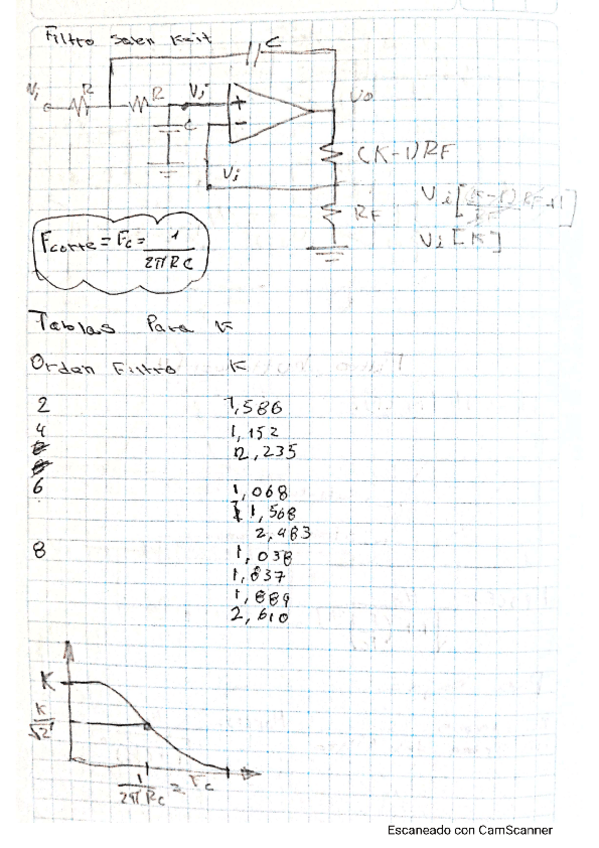 Filtro Salen Keit
C
Vi R R Vi + Vo
C -
(K-1)RF
Vi
RF
Vi[K]
Fcorte = Fc = 1/2πRC
Tablas Para K
Orden Filtro K
2 1,586
4 1,152
2,235
6 1,068
1,568
2,483
8 1,038
1,837
1,889
2,610
K
K/√2
1/2πRC = Fc
Escaneado con CamScanner